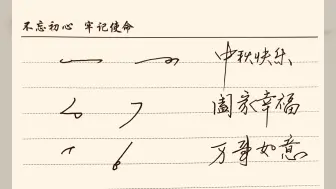 不忘初心 牢记使命
中秋快乐
阖家幸福
万事如意